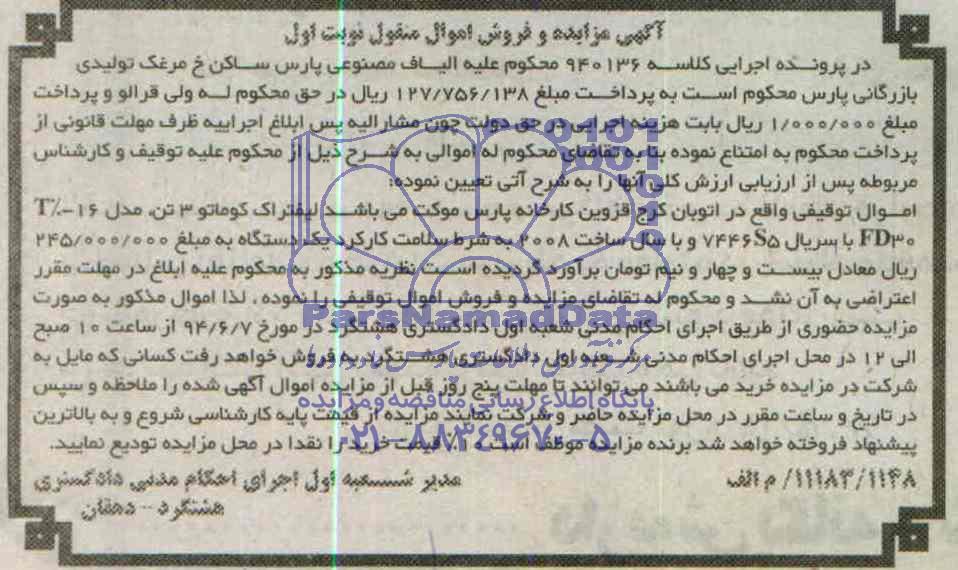 آگهی مزایده و فروش اموال منقول نوبت اول
در پرونده اجرایی کلاسه ۹۴۰۱۳۶ محکوم علیه الیاف مصنوعی پارس ساکن خ مرغک تولیدی
بازرگانی پارس محکوم است به پرداخت مبلغ ۱۲۷/۷۵۶/۱۳۸ ریال در حق محکوم له ولی قرالو و پرداخت
مبلغ ۱/۰۰۰/۰۰۰ ریال بابت هزینه اجرایی در حق دولت چون مشار الیه پس ابلاغ اجراییه ظرف مهلت قانونی از
پرداخت محکوم به امتناع نموده بنا به تقاضای محکوم له اموالی به شرح ذیل از محکوم علیه توقیف و کارشناس
مربوطه پس از ارزیابی ارزش کلی آنها را به شرح آتی تعیین نموده:
اموال توقیفی واقع در اتوبان کرج قزوین کارخانه پارس موکت می باشد لیفتراک کوماتو ۳ تن، مدل ۱۶-T٪
FD۳۰ با سریال ۷۴۴۶S۵ و با سال ساخت ۲۰۰۸ به شرط سلامت کارکرد یک دستگاه به مبلغ ۲۴۵/۰۰۰/۰۰۰
ریال معادل بیست و چهار و نیم تومان برآورد گردیده است نظریه مذکور به محکوم علیه ابلاغ در مهلت مقرر
اعتراضی به آن نشد و محکوم له تقاضای مزایده و فروش اموال توقیفی را نموده ، لذا اموال مذکور به صورت
مزایده حضوری از طریق اجرای احکام مدنی شعبه اول دادگستری هشتگرد در مورخ ۹۴/۶/۷ از ساعت ۱۰ صبح
الی ۱۲ در محل اجرای احکام مدنی شعبه اول دادگستری هشتگرد به فروش خواهد رفت کسانی که مایل به
شرکت در مزایده خرید می باشند می توانند تا مهلت پنج روز قبل از مزایده اموال آگهی شده را ملاحظه و سپس
در تاریخ و ساعت مقرر در محل مزایده حاضر و شرکت نمایند مزایده از قیمت پایه کارشناسی شروع و به بالاترین
پیشنهاد فروخته خواهد شد برنده مزایده موظف است ۱۰٪ قیمت خرید را نقدا در محل مزایده تودیع نمایید.
۱۱۱۸۳/۱۱۴۸/ م الف
مدیر شعبه اول اجرای احکام مدنی دادگستری
هشتگرد - دهقان
ParsNamadData
پایگاه اطلاع رسانی مناقصه و مزایده
۰۲۱-۸۸۳۴۹۶۷۰-۵